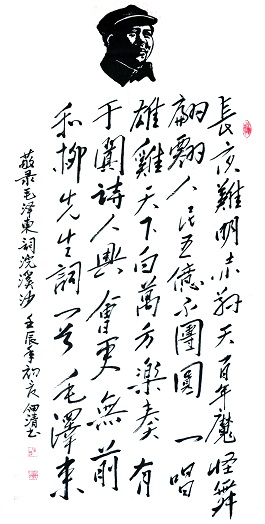 長夜難明赤縣天百年魔怪舞
翩翩人民五億不團圓 一唱
雄雞天下白萬方樂奏有
于闐詩人興會更無前
和柳先生詞一首 毛澤東
敬录毛泽東詞浣溪沙 壬辰年初夏 清书